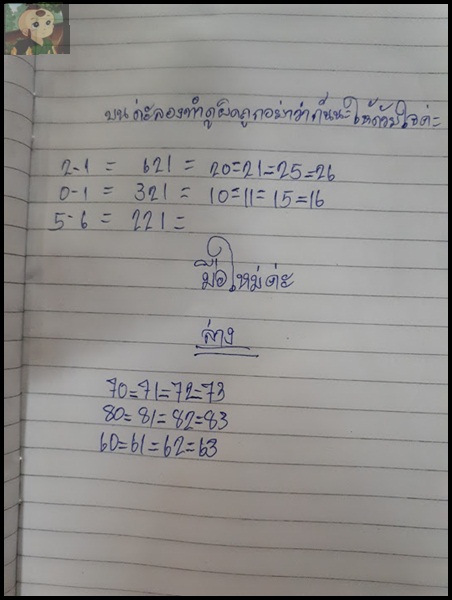 บนค่ะลองทำดูผิดถูกอย่าว่ากันนะให้ด้วยใจค่ะ
2-1 = 621 = 20=21=25=26
0-1 = 321 = 10=11=15=16
5-6 = 221 =
มือใหม่ค่ะ
ล่าง
70=71=72=73
80=81=82=83
60=61=62=63